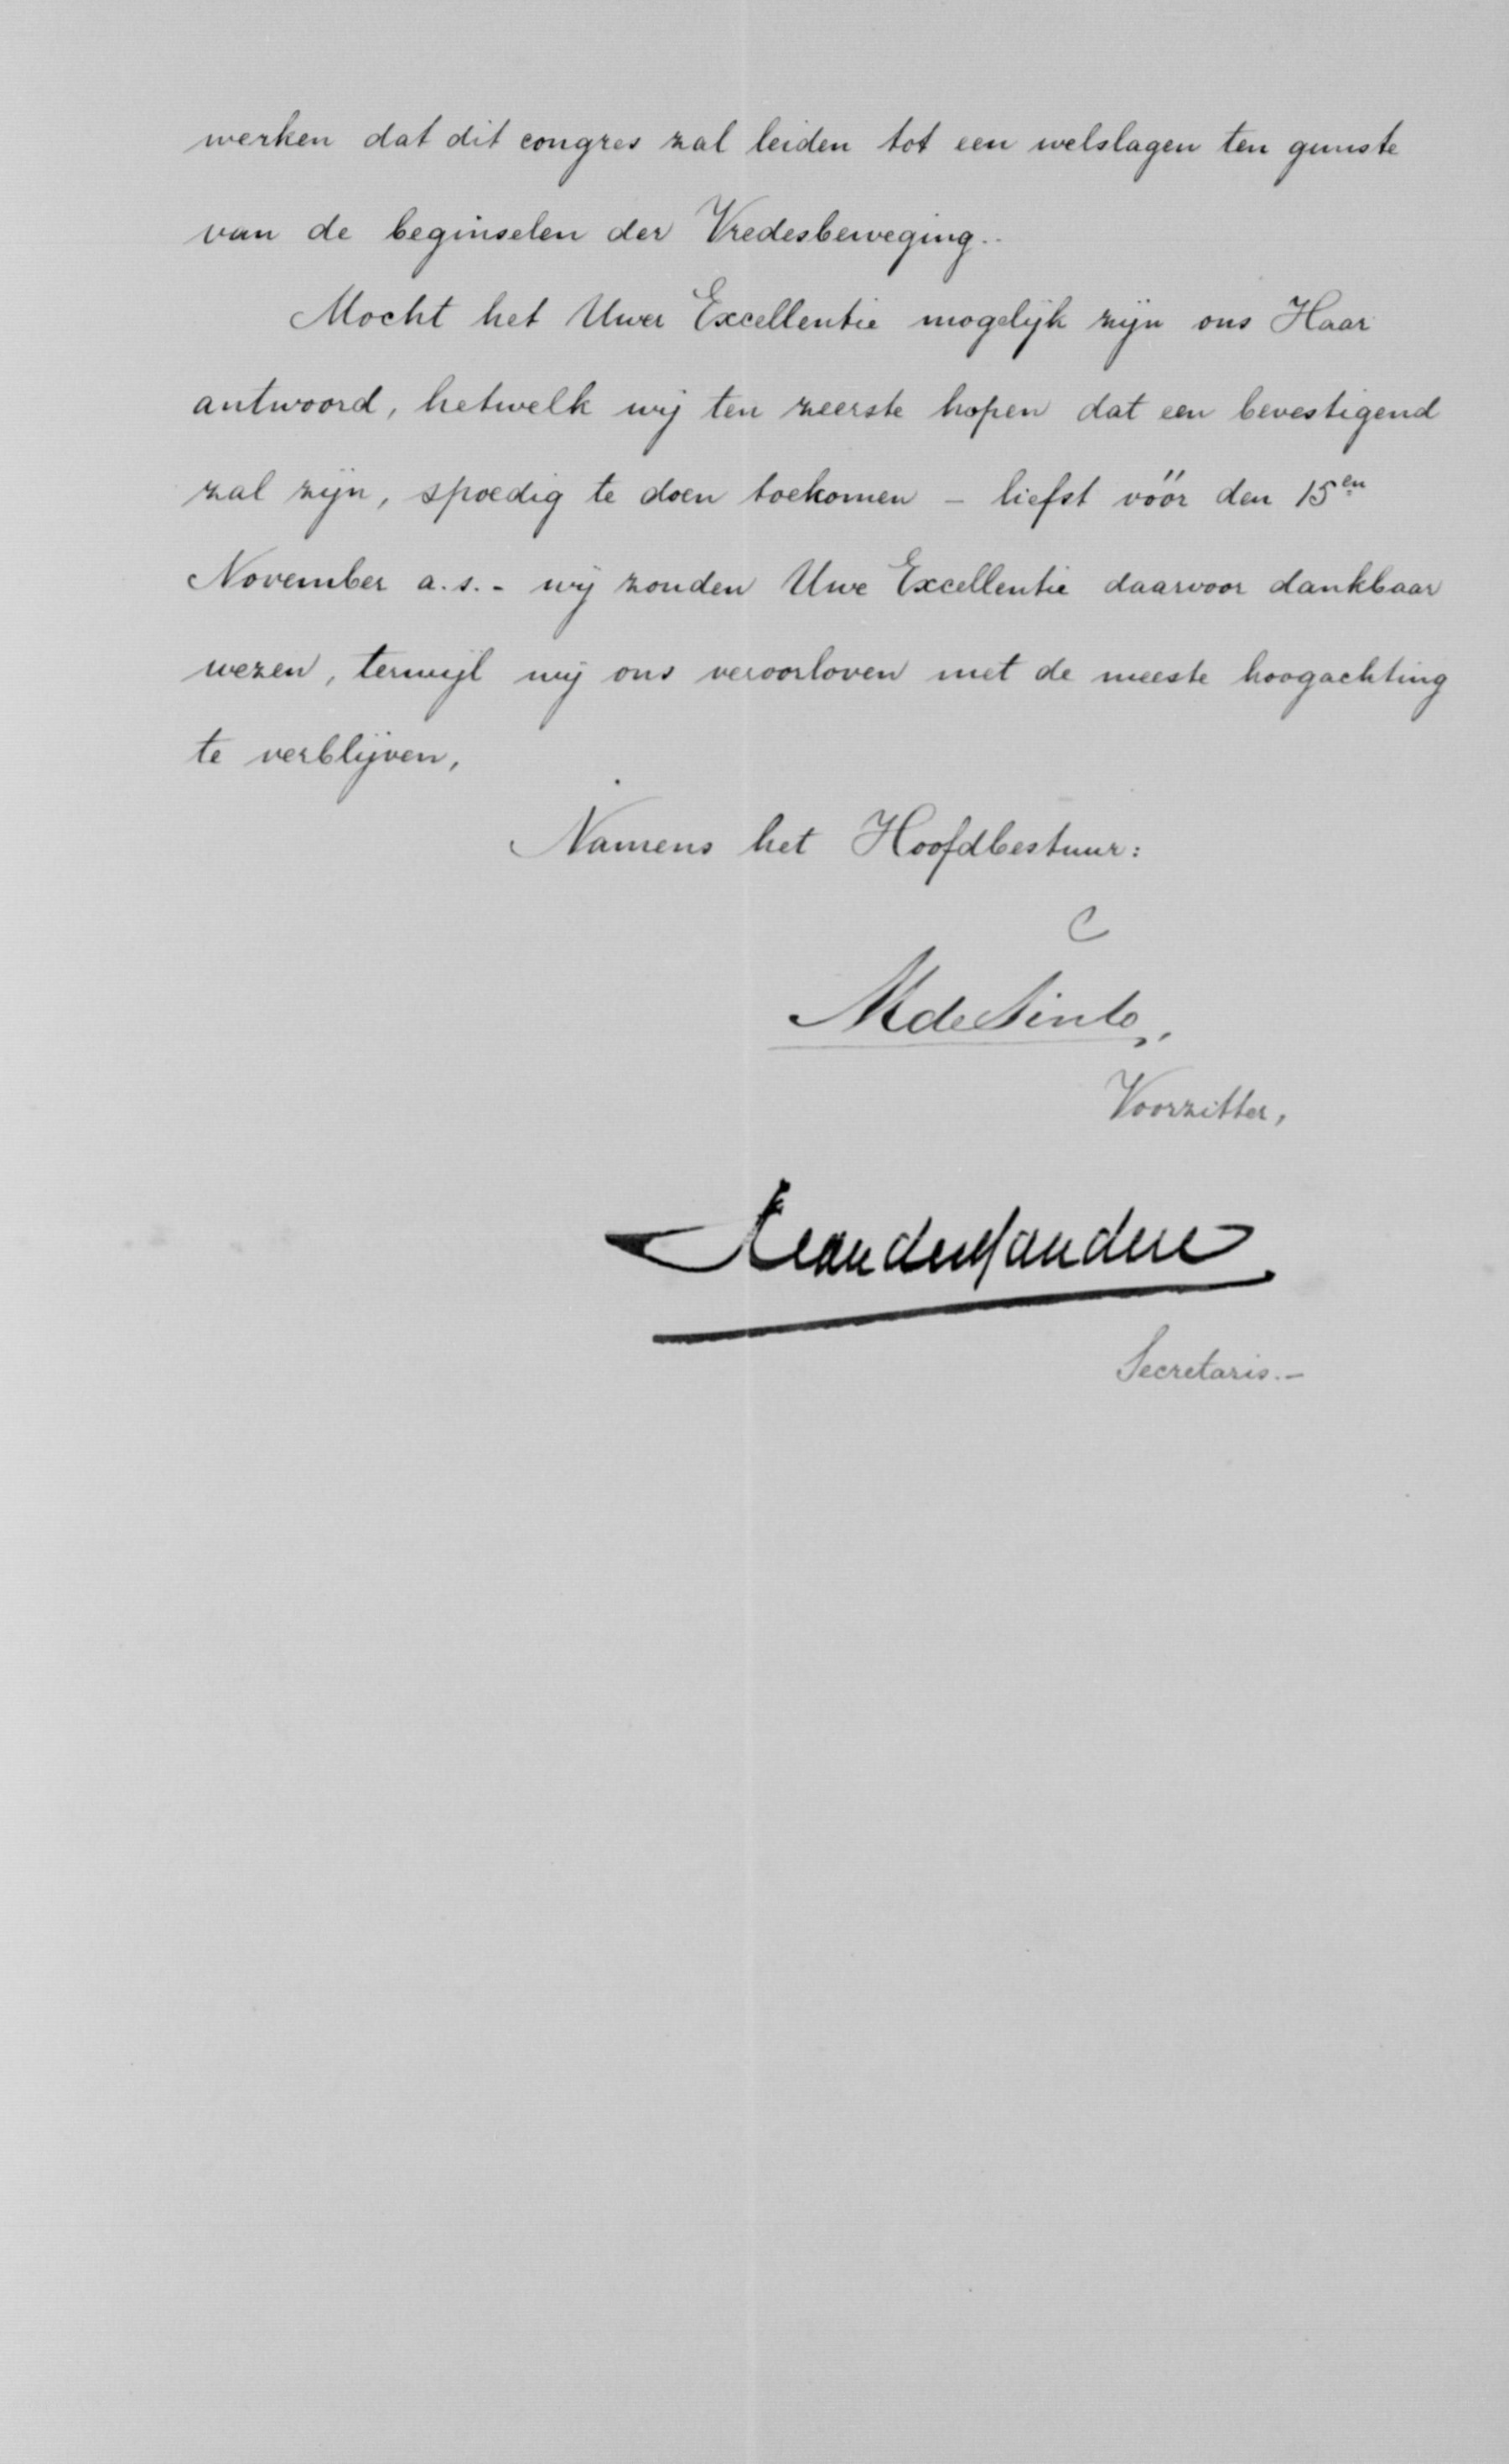 werken dat dit congres zal leiden tot een welslagen ten gunste
van de beginselen der Vredesbeweging..
Mocht het Uwer Excellentie mogelijk zijn ons Haar
antwoord, hetwelk wij ten zeerste hopen dat een bevestigend
zal zijn, spoedig te doen toekomen – liefst vóór den 15en
November a.s. - wij zouden Uwe Excellentie daarvoor dankbaar
wezen, terwijl wij ons veroorloven met de meeste hoogachting
te verblijven,
Namens het Hoofdbestuur:
Voorzitter,
Secretaris.-